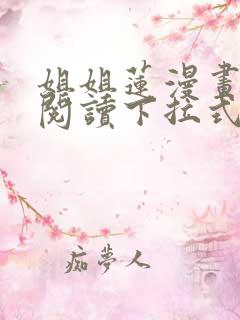 姐姐蓮漫畫
閱讀下拉式
痴夢人